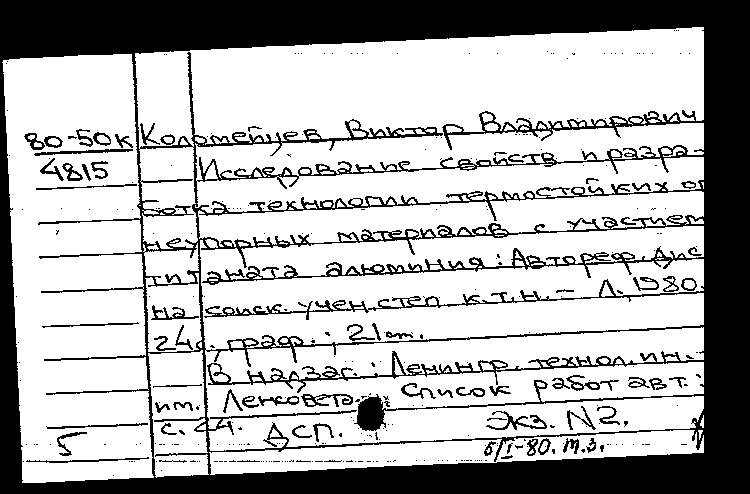 80-50к Коломейцев, Виктор Владимирович
4815 Исследование свойств и разра-
ботка технологии термостойких ог
неупорных материалов с участием
титаната алюминия: Автореф. дис
на соиск. учен. степ. к.т.н. - Л., 1980.
24с. граф.; 21 см.
В надзаг.: Ленингр. технол. ин.-
им. Ленсовета. Список работ авт.:
с. 24.
5 ДСП. Экз. N2.
5/I-80. т.з.